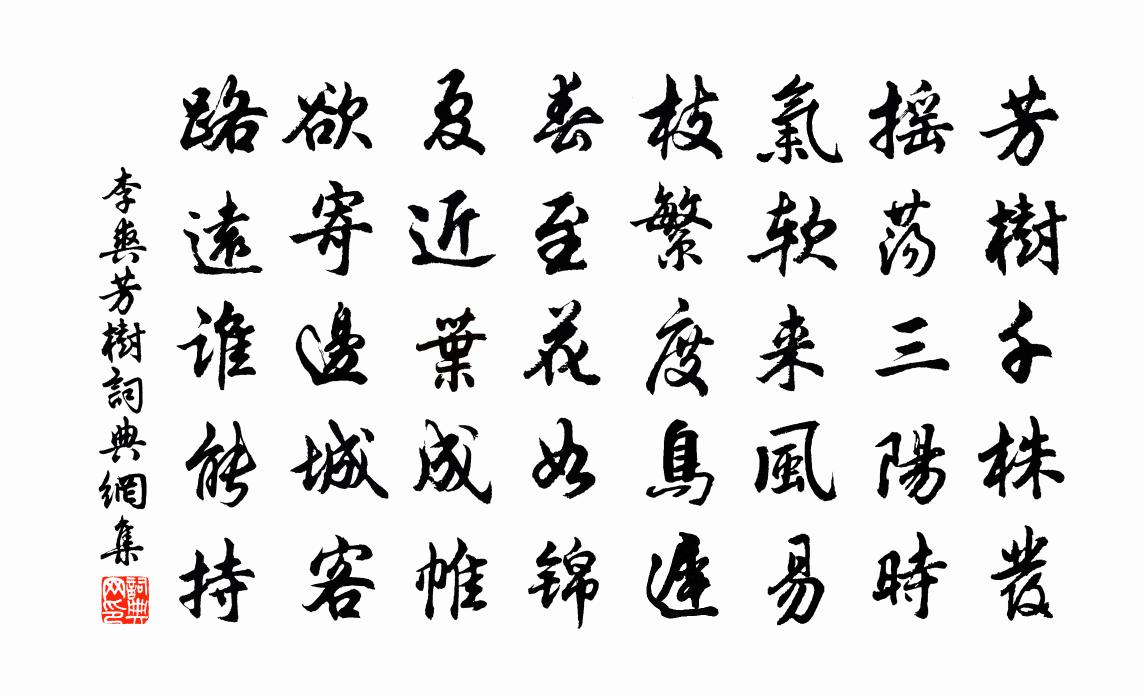 芳樹千株發
摇荡三陽時
氣软来風易
枝繁度鳥遲
春至花如锦
夏近葉成帷
欲寄邊城客
路遠誰能持
李爽芳樹詞典網集
詞典網印